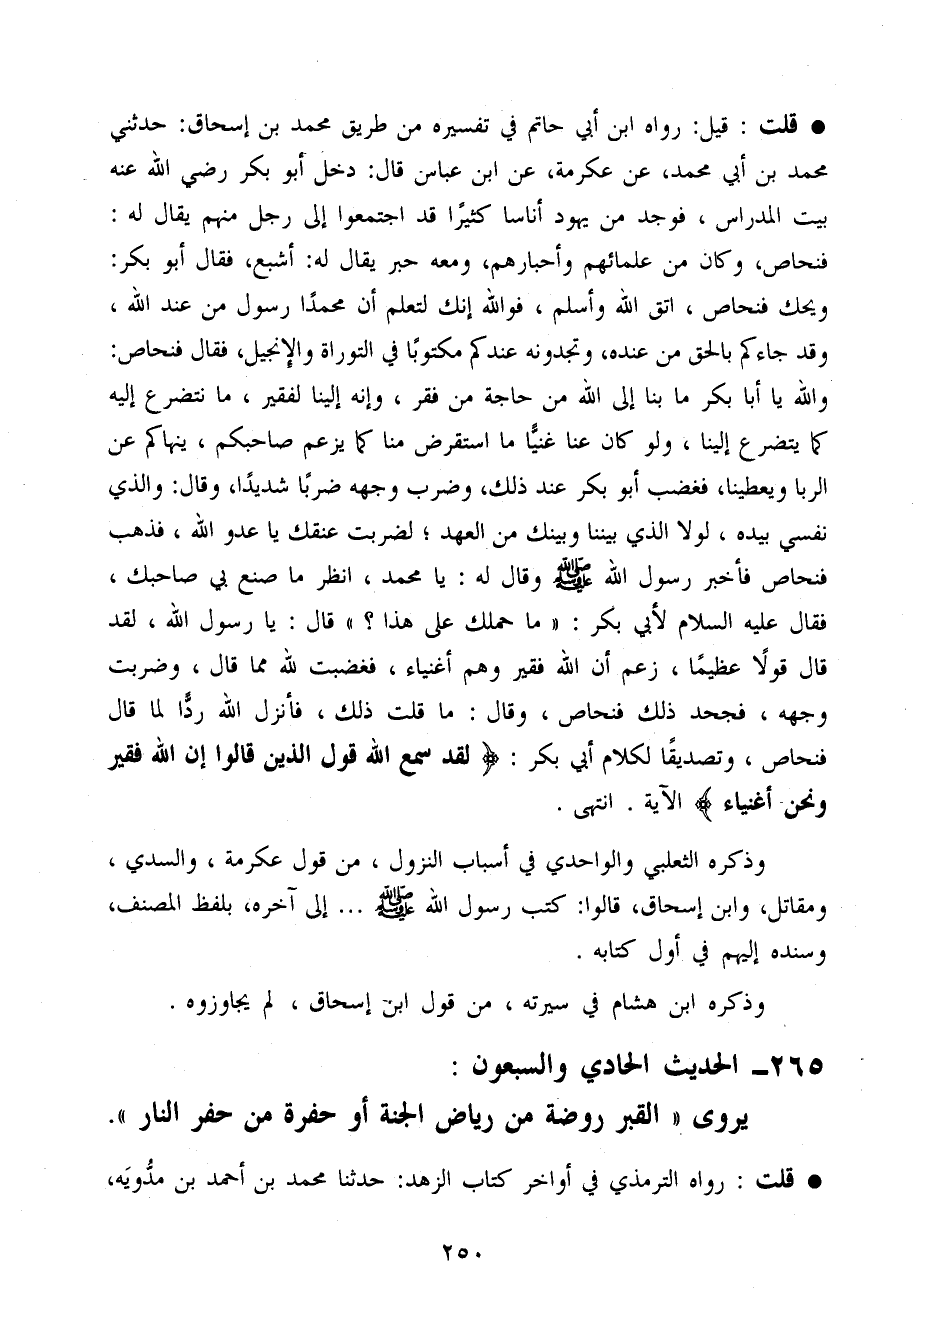 ● قلت : قيل: رواه ابن أبي حاتم في تفسيره من طريق محمد بن إسحاق: حدثني
محمد بن أبي محمد، عن عكرمة، عن ابن عباس قال: دخل أبو بكر رضي الله عنه
بيت المدراس ، فوجد من يهود أناسا كثيرًا قد اجتمعوا إلى رجل منهم يقال له :
فنحاص، وكان من علمائهم وأحبارهم، ومعه حبر يقال له: أشبع، فقال أبو بكر:
ويحك فنحاص ، اتق الله وأسلم ، فوالله إنك لتعلم أن محمدًا رسول من عند الله ،
وقد جاءكم بالحق من عنده، وتجدونه عندكم مكتوبًا في التوراة والإنجيل، فقال فنحاص:
والله يا أبا بكر ما بنا إلى الله من حاجة من فقر ، وإنه إلينا لفقير ، ما نتضرع إليه
كما يتضرع إلينا ، ولو كان عنا غنيًّا ما استقرض منا كما يزعم صاحبكم ، ينهاكم عن
الربا ويعطينا، فغضب أبو بكر عند ذلك، وضرب وجهه ضربًا شديدًا، وقال: والذي
نفسي بيده ، لولا الذي بيننا وبينك من العهد ؛ لضربت عنقك يا عدو الله ، فذهب
فنحاص فأخبر رسول الله ﷺ وقال له : يا محمد ، انظر ما صنع بي صاحبك ،
فقال عليه السلام لأبي بكر : « ما حملك على هذا ؟ » قال : يا رسول الله ، لقد
قال قولًا عظيمًا ، زعم أن الله فقير وهم أغنياء ، فغضبت لله مما قال ، وضربت
وجهه ، فجحد ذلك فنحاص ، وقال : ما قلت ذلك ، فأنزل الله ردًّا لما قال
فنحاص ، وتصديقًا لكلام أبي بكر : ﴿ لقد سمع الله قول الذين قالوا إن الله فقير
ونحن أغنياء ﴾ الآية . انتهى .
وذكره الثعلبي والواحدي في أسباب النزول ، من قول عكرمة ، والسدي ،
ومقاتل، وابن إسحاق، قالوا: كتب رسول الله ﷺ ... إلى آخره، بلفظ المصنف،
وسنده إليهم في أول كتابه .
وذكره ابن هشام في سيرته ، من قول ابن إسحاق ، لم يجاوزوه .
٢٦٥ـ الحديث الحادي والسبعون :
يروى « القبر روضة من رياض الجنة أو حفرة من حفر النار ».
● قلت : رواه الترمذي في أواخر كتاب الزهد: حدثنا محمد بن أحمد بن مدُّويَه،
٢٥٠